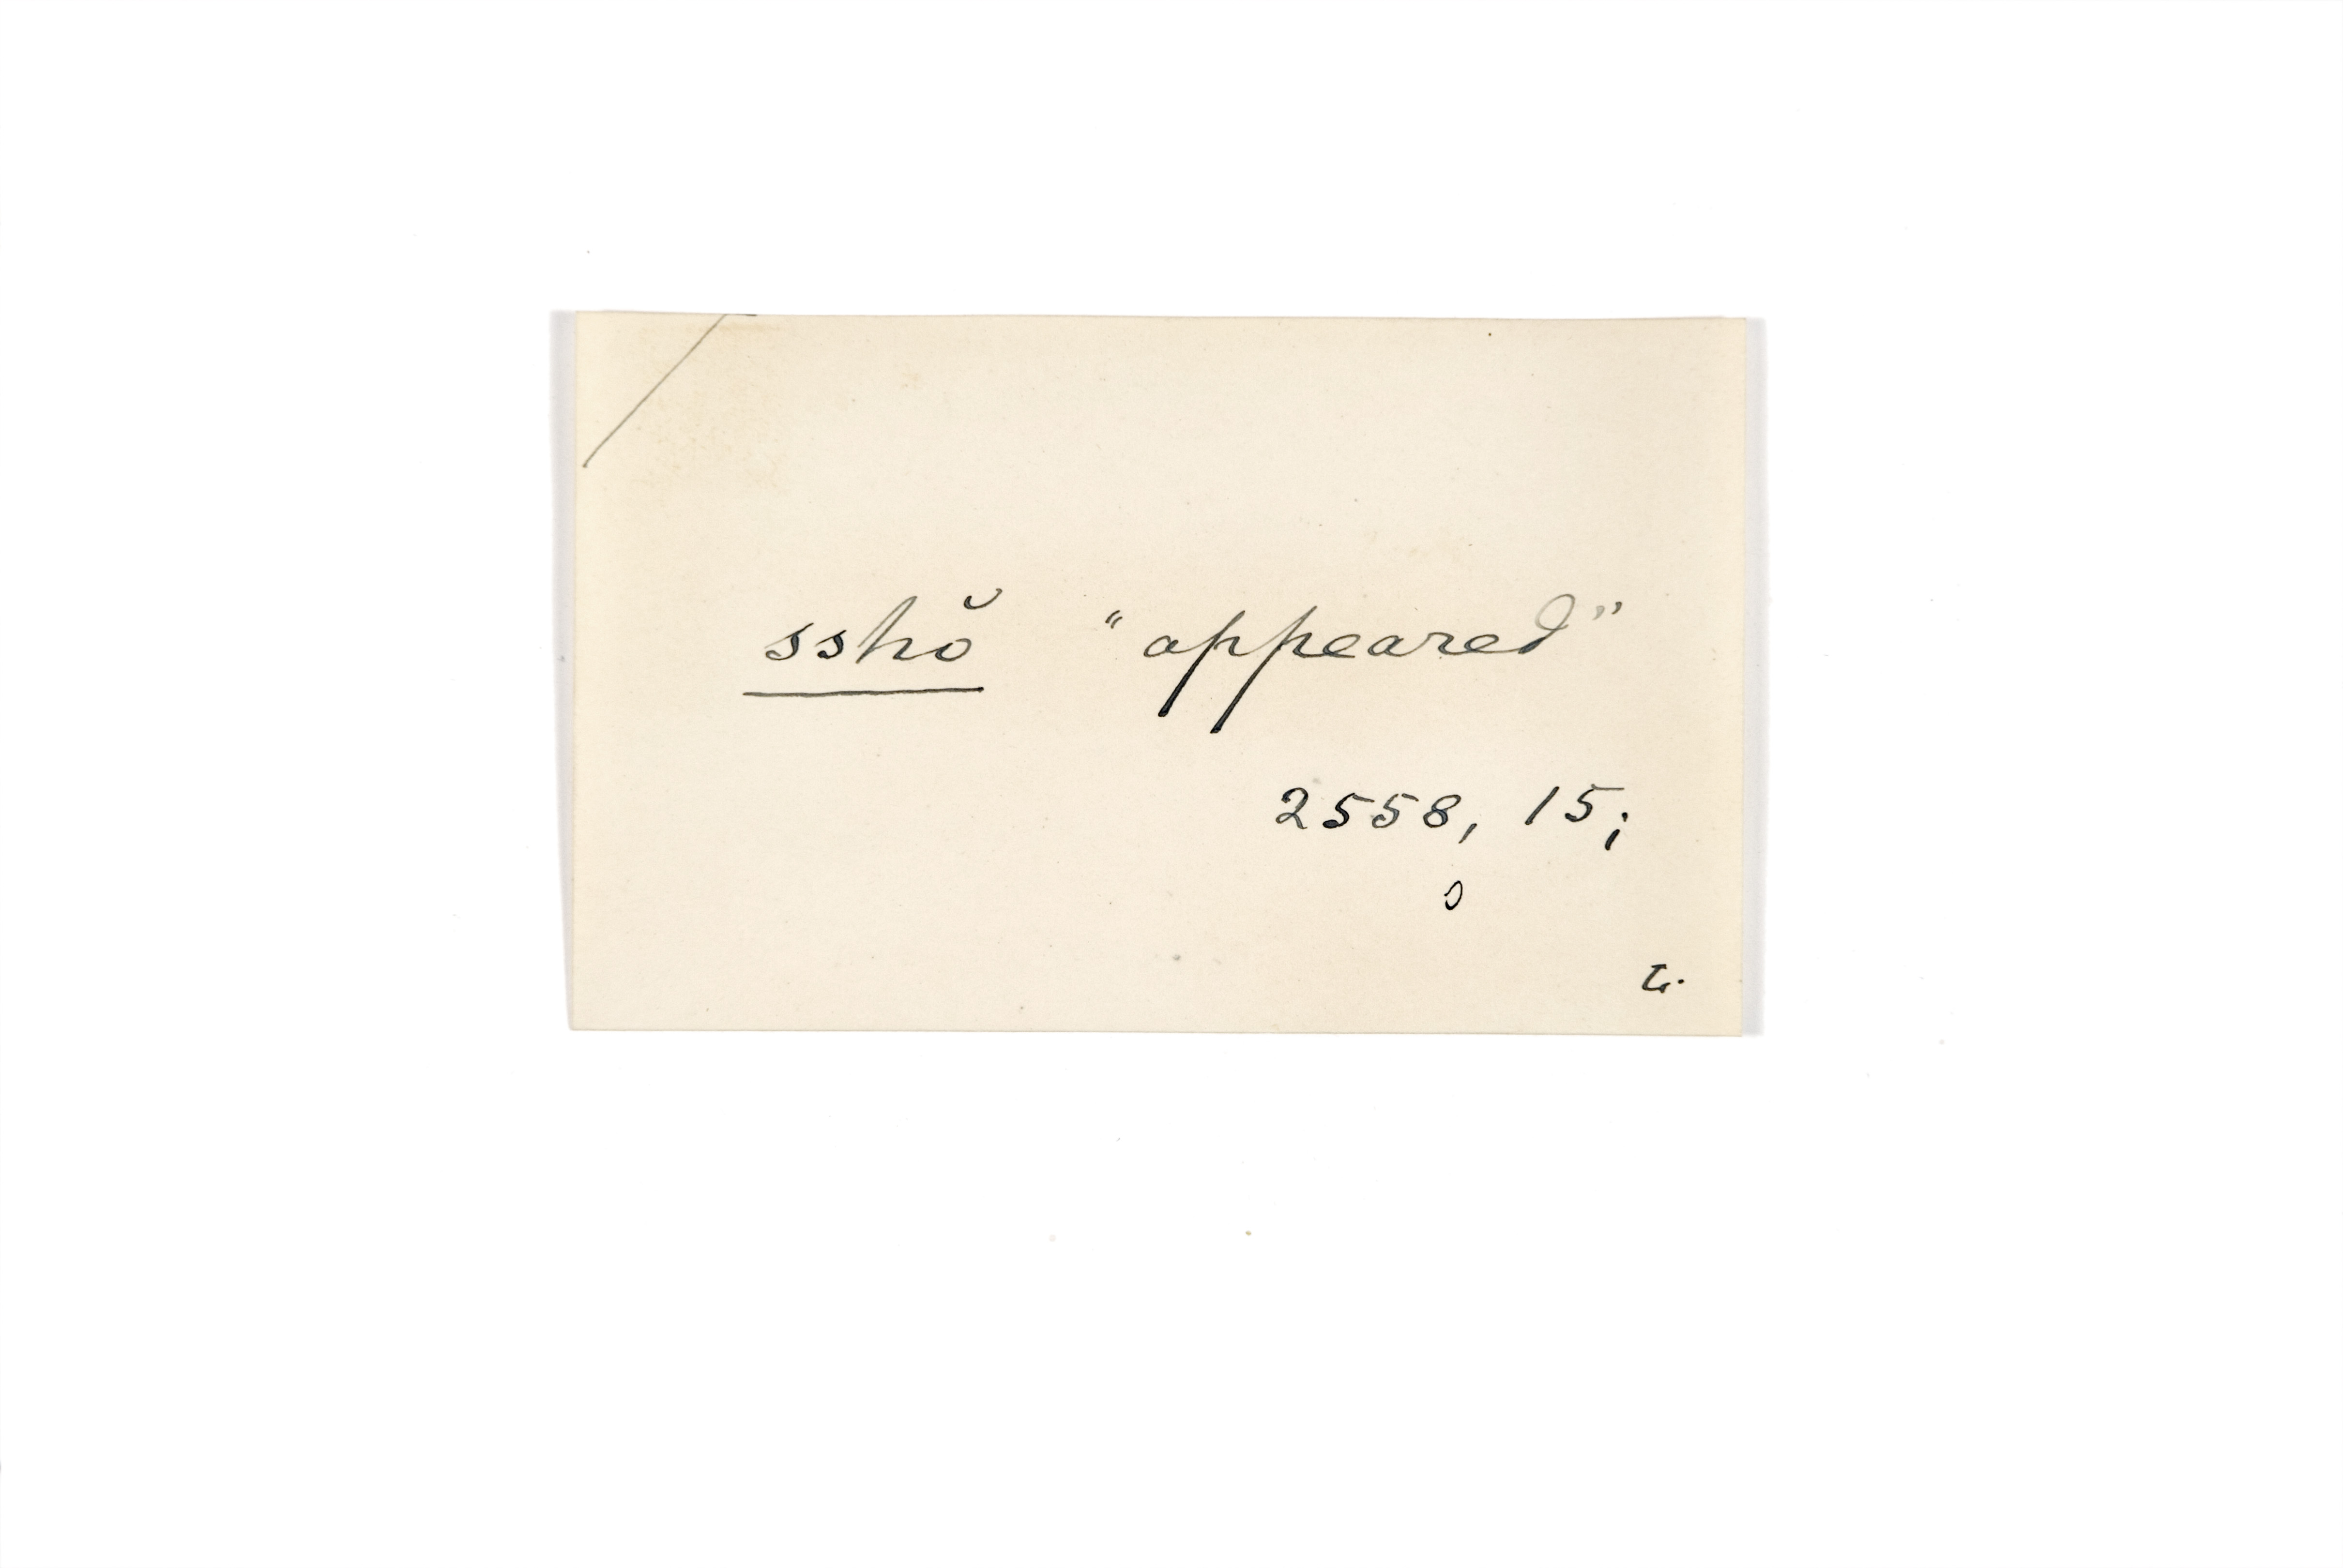 sshŏ “appeared”
2558, 15;